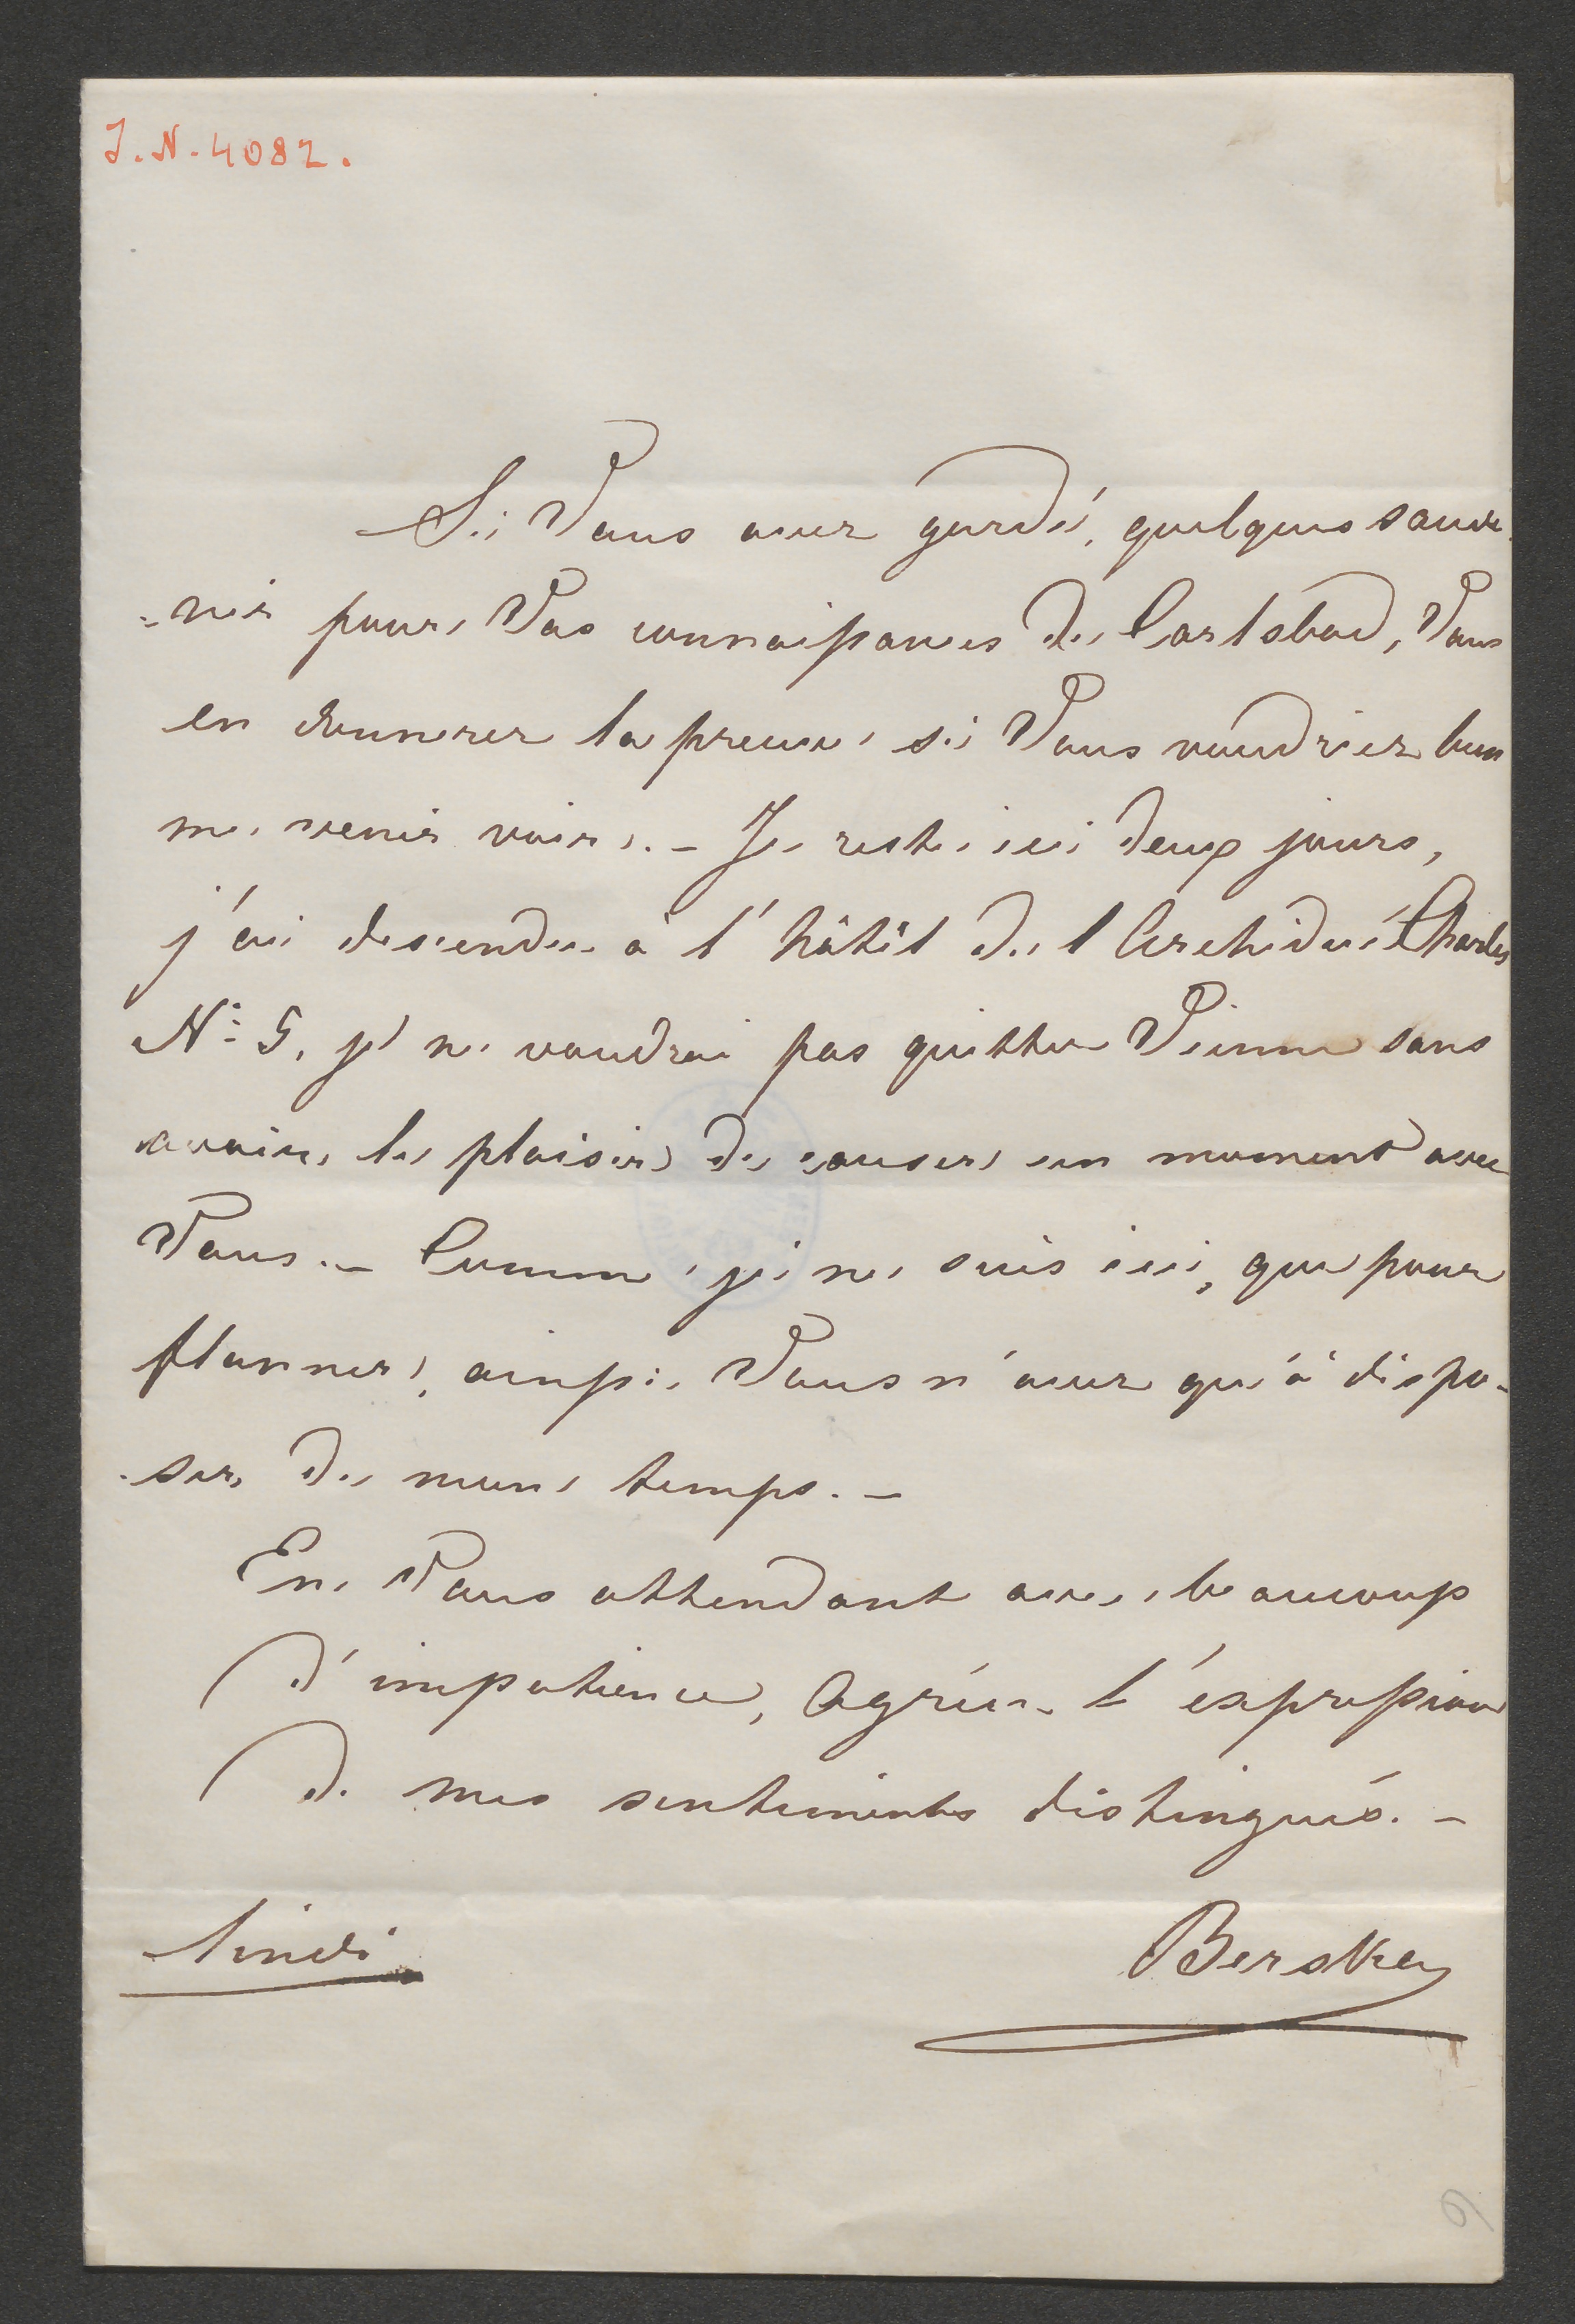 J.N. 4082.
Si Vous avez gardé, quelques souve
-nir pour Vos connaissances de Carlsbad, Vous
en donnerez la preuve si Vous voudriez bien
me venir voir. - Je reste ici deux jours,
j'ai descendu à l'hôtêl de l'Archiduc Charles
No: 5, je ne voudrai pas quitter Vienne sans
avoir le plaisir de causer un moment avec
Vous. - Comme je ne suis ici, que pour
flanner, ainssi Vous n'avez qu'à dispo-
-ser de mon temps. -
En Vous attendant avec beaucoup
d'impatience, Agréez l'expression
de mes sentiments distingués. -
Lindi
Berskey
9